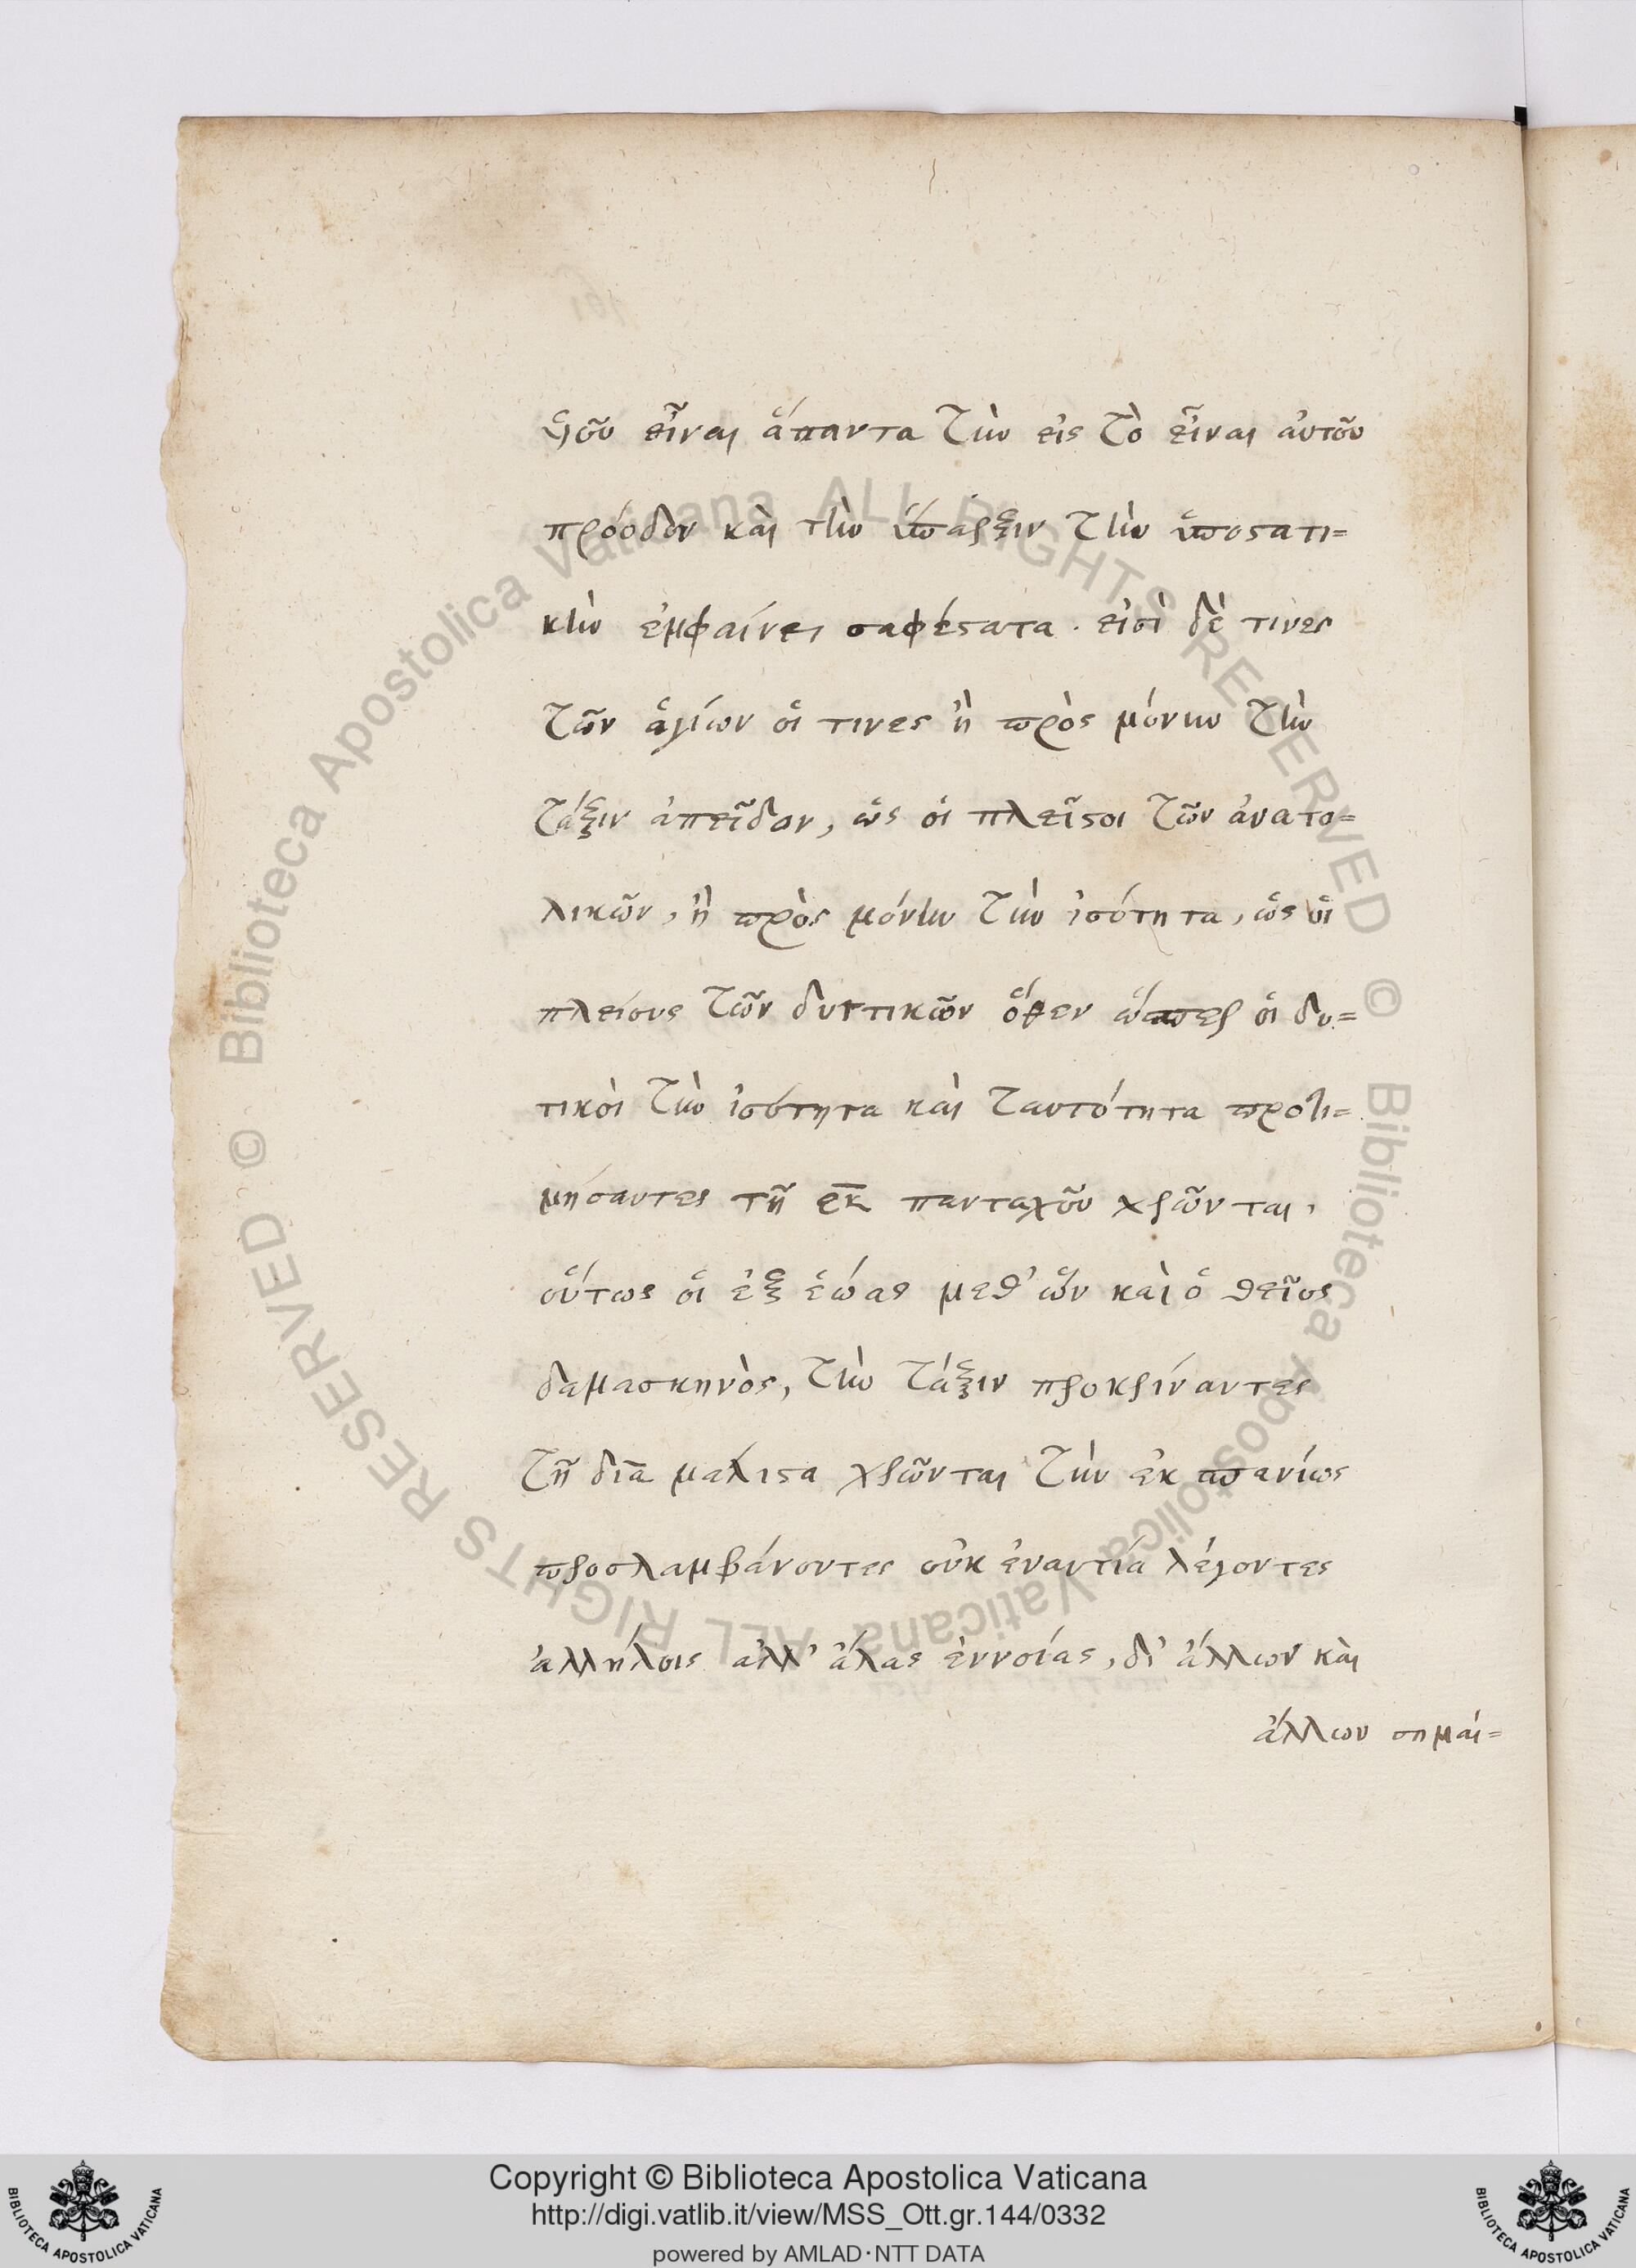 ὑιοῦ εἶναι ἅπαντα τὴν εἰς τὸ εἶναι αὐτοῦ
πρόοδον καὶ τὴν ὕπαρξιν τὴν ὑποστατι=
κὴν ἐμφαίνει σαφέστατα. εἰσὶ δὲ τινες
τῶν ἁγίων οἵ τινες ἢ πρὸς μόνην τὴν
τάξιν ἀπεῖδον, ὡς οἱ πλεῖστοι τῶν ἀνατο=
λικῶν, ἢ πρὸς μόνην τὴν ἰσότητα, ὡς οἱ
πλείους τῶν δυττικῶν ὅθεν ὥσπερ οἱ δυ=
τικοὶ τὴν ἰσότητα καὶ ταυτότητα προτι=
μήσαντες τῆ ἐκ πανταχοῦ χρῶνται,
οὕτως οἱ ἐξ ἑώας μεθ' ὧν καὶ ὁ θεῖος
δαμασκηνὸς, τὴν τάξιν προκρίναντες
τῆ διὰ μάλιστα χρῶνται τὴν ἐκ σπανίως
προσλαμβάνοντες οὐκ ἐναντία λέγοντες
ἀλλήλοις ἀλλ' ἄλας ἐννοίας, δι' ἄλλων καὶ
ἄλλων σημαί=
Biblioteca Apostolica Vaticana ALL RIGHTS RESERVED ©
Biblioteca Apostolica Vaticana ALL RIGHTS RESERVED ©
Copyright © Biblioteca Apostolica Vaticana
http://digi.vatlib.it/view/MSS_Ott.gr.144/0332
powered by AMLAD·NTT DATA
BIBLIOTECA APOSTOLICA VATICANA
BIBLIOTECA APOSTOLICA VATICANA